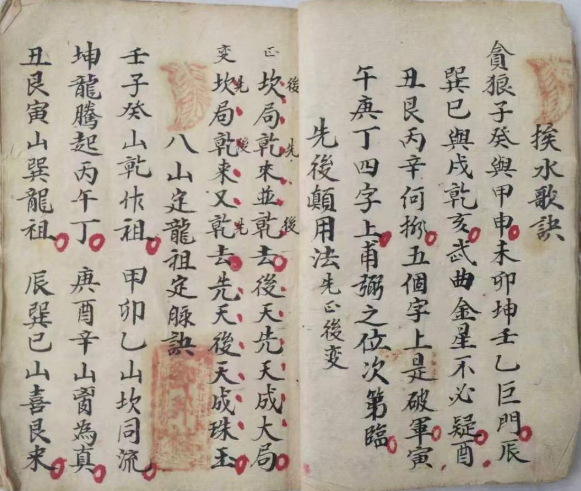 挨水歌訣
貪狼子癸與甲申未卯坤壬乙巨門辰
巽巳與戌乾亥武曲金星不必疑酉
丑艮丙辛何五個字上是破軍寅
午庚丁四字上甫弼之位次第臨
先後顛用法先正後变
後先後
正坎局乾來並乾去後天先天成大局
先後先
变坎局乾來又乾去先天後天成珠玉
八山定龍祖定脉訣
壬子癸山乾作祖 甲卯乙山坎同流
坤龍騰起丙午丁 庚酉辛山為真
丑艮寅山巽龍祖 辰巽巳山喜艮来